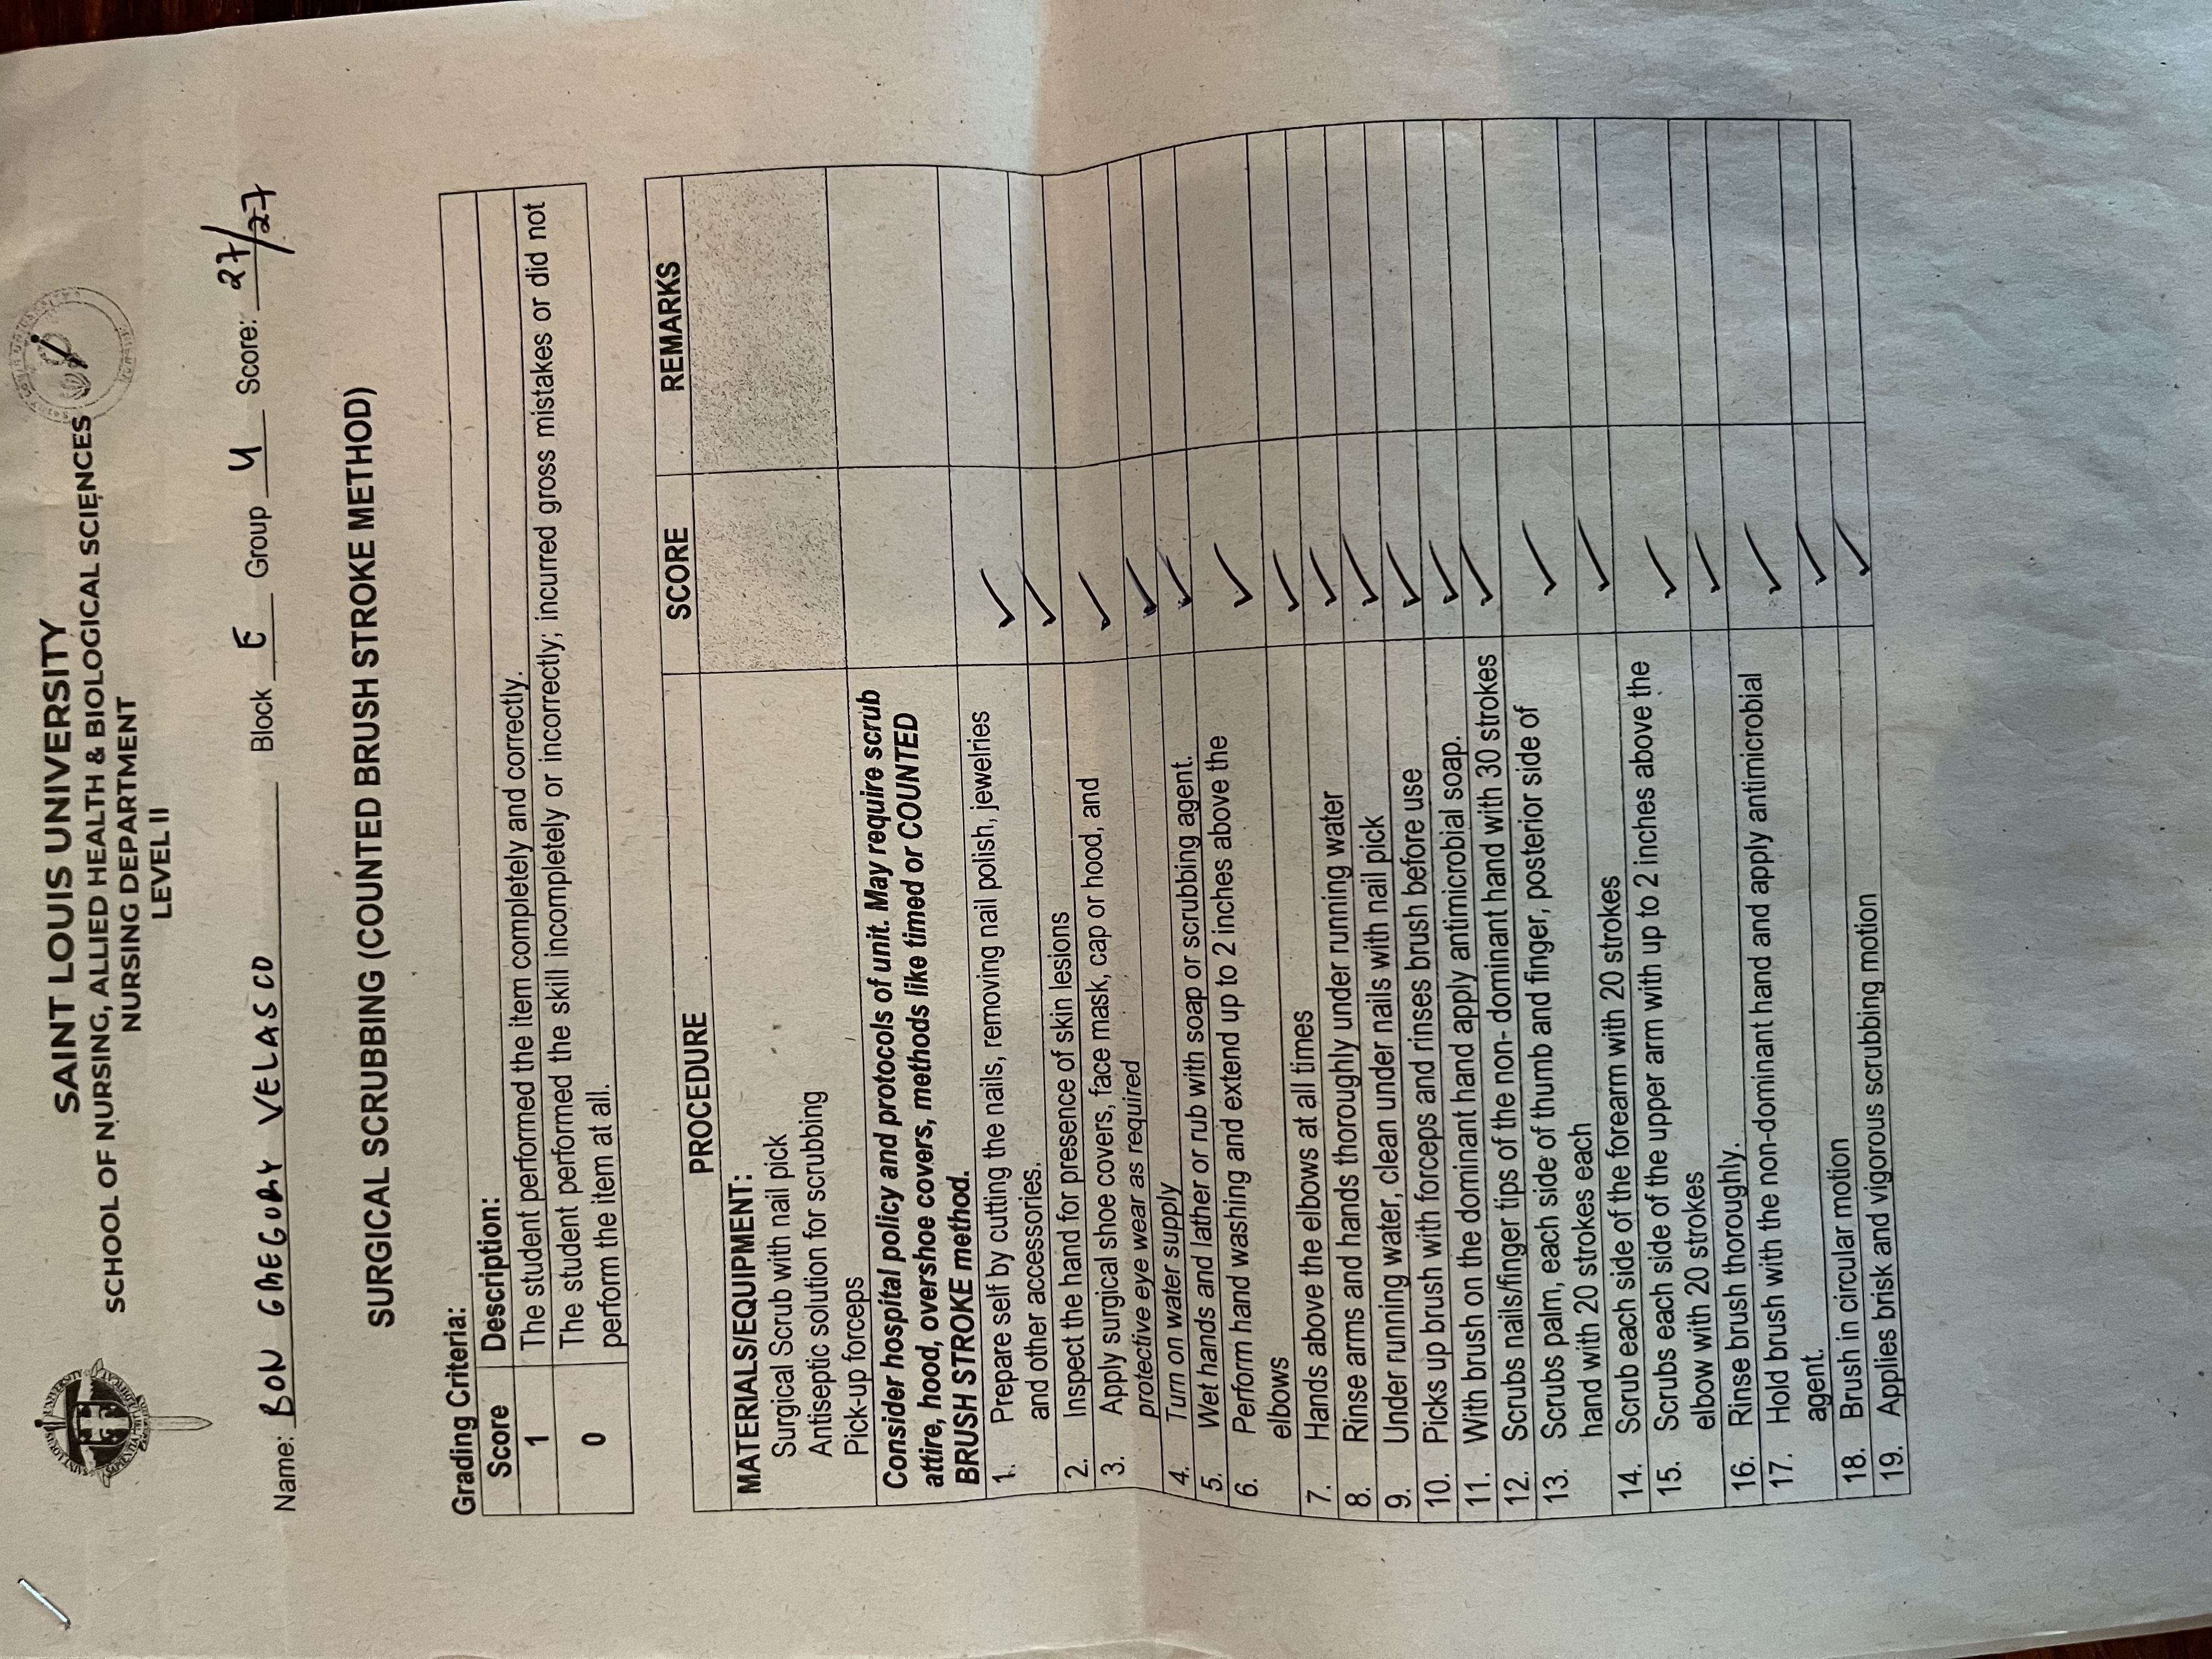 SAINT LOUIS UNIVERSITY
SCHOOL OF NURSING, ALLIED HEALTH & BIOLOGICAL SCIENCES
NURSING DEPARTMENT
LEVEL II
Name: BON GREGORY VELASCO Block E Group 4 Score: 27/27
SURGICAL SCRUBBING (COUNTED BRUSH STROKE METHOD)
Grading Criteria:
Score Description:
1 The student performed the item completely and correctly.
0 The student performed the skill incompletely or incorrectly; incurred gross mistakes or did not
perform the item at all.
PROCEDURE SCORE REMARKS
MATERIALS/EQUIPMENT:
Surgical Scrub with nail pick
Antiseptic solution for scrubbing
Pick-up forceps
Consider hospital policy and protocols of unit. May require scrub
attire, hood, overshoe covers, methods like timed or COUNTED
BRUSH STROKE method.
1. Prepare self by cutting the nails, removing nail polish, jewelries ✓
and other accessories.
2. Inspect the hand for presence of skin lesions ✓
3. Apply surgical shoe covers, face mask, cap or hood, and ✓
protective eye wear as required
4. Turn on water supply ✓
5. Wet hands and lather or rub with soap or scrubbing agent. ✓
6. Perform hand washing and extend up to 2 inches above the ✓
elbows
7. Hands above the elbows at all times ✓
8. Rinse arms and hands thoroughly under running water ✓
9. Under running water, clean under nails with nail pick ✓
10. Picks up brush with forceps and rinses brush before use ✓
11. With brush on the dominant hand apply antimicrobial soap. ✓
12. Scrubs nails/finger tips of the non- dominant hand with 30 strokes ✓
13. Scrubs palm, each side of thumb and finger, posterior side of ✓
hand with 20 strokes each
14. Scrub each side of the forearm with 20 strokes ✓
15. Scrubs each side of the upper arm with up to 2 inches above the ✓
elbow with 20 strokes
16. Rinse brush thoroughly. ✓
17. Hold brush with the non-dominant hand and apply antimicrobial ✓
agent.
18. Brush in circular motion ✓
19. Applies brisk and vigorous scrubbing motion ✓